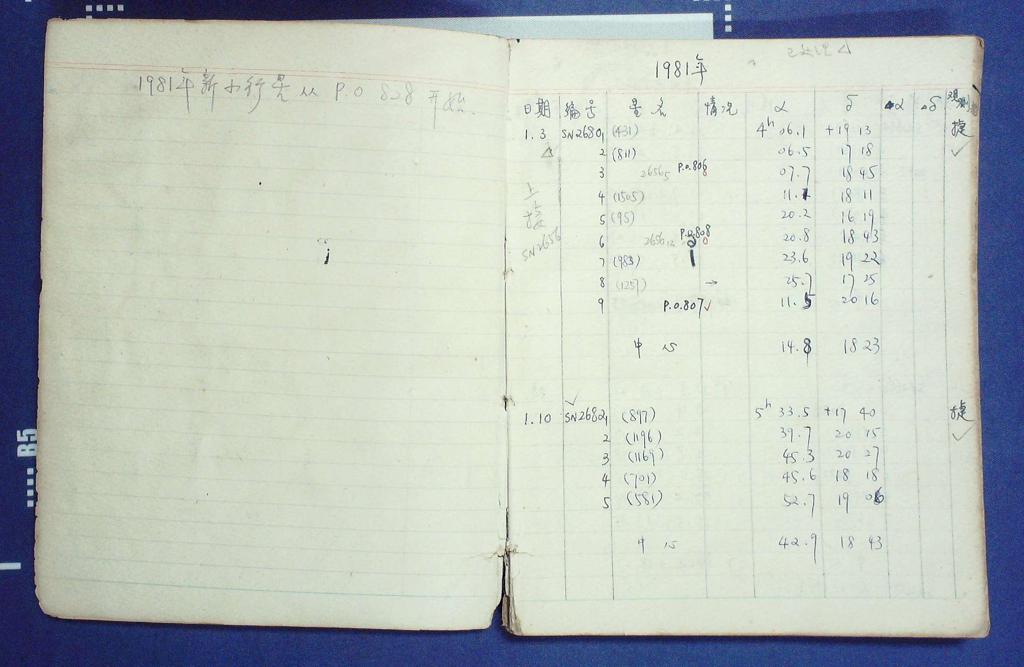 1981年新小行星从 P.O 828 开始
已处理 △
1981年
日期 编号 星名 情况 α δ Δα Δδ 观测
1.3 SN2680 1 (431) 4h 06.1 +19 13 捷
△ 2 (811) 06.5 17 18 ✓
3 2656 5 P.O.806 07.7 18 45
上 4 (1505) 11.1 18 11
接 5 (95) 20.2 16 19
SN2656 6 2656 12 P.O.808 20.8 18 43
7 (983) 23.6 19 22
8 (1257) → 25.7 17 25
9 P.O.807 ✓ 11.5 20 16
中心 14.8 18 23
✓
1.10 SN2682 1 (897) 5h 33.5 +17 40 捷
2 (1196) 39.7 20 15 ✓
3 (1169) 45.3 20 27
4 (701) 45.6 18 18
5 (581) 52.7 19 06
中心 42.9 18 43
B5